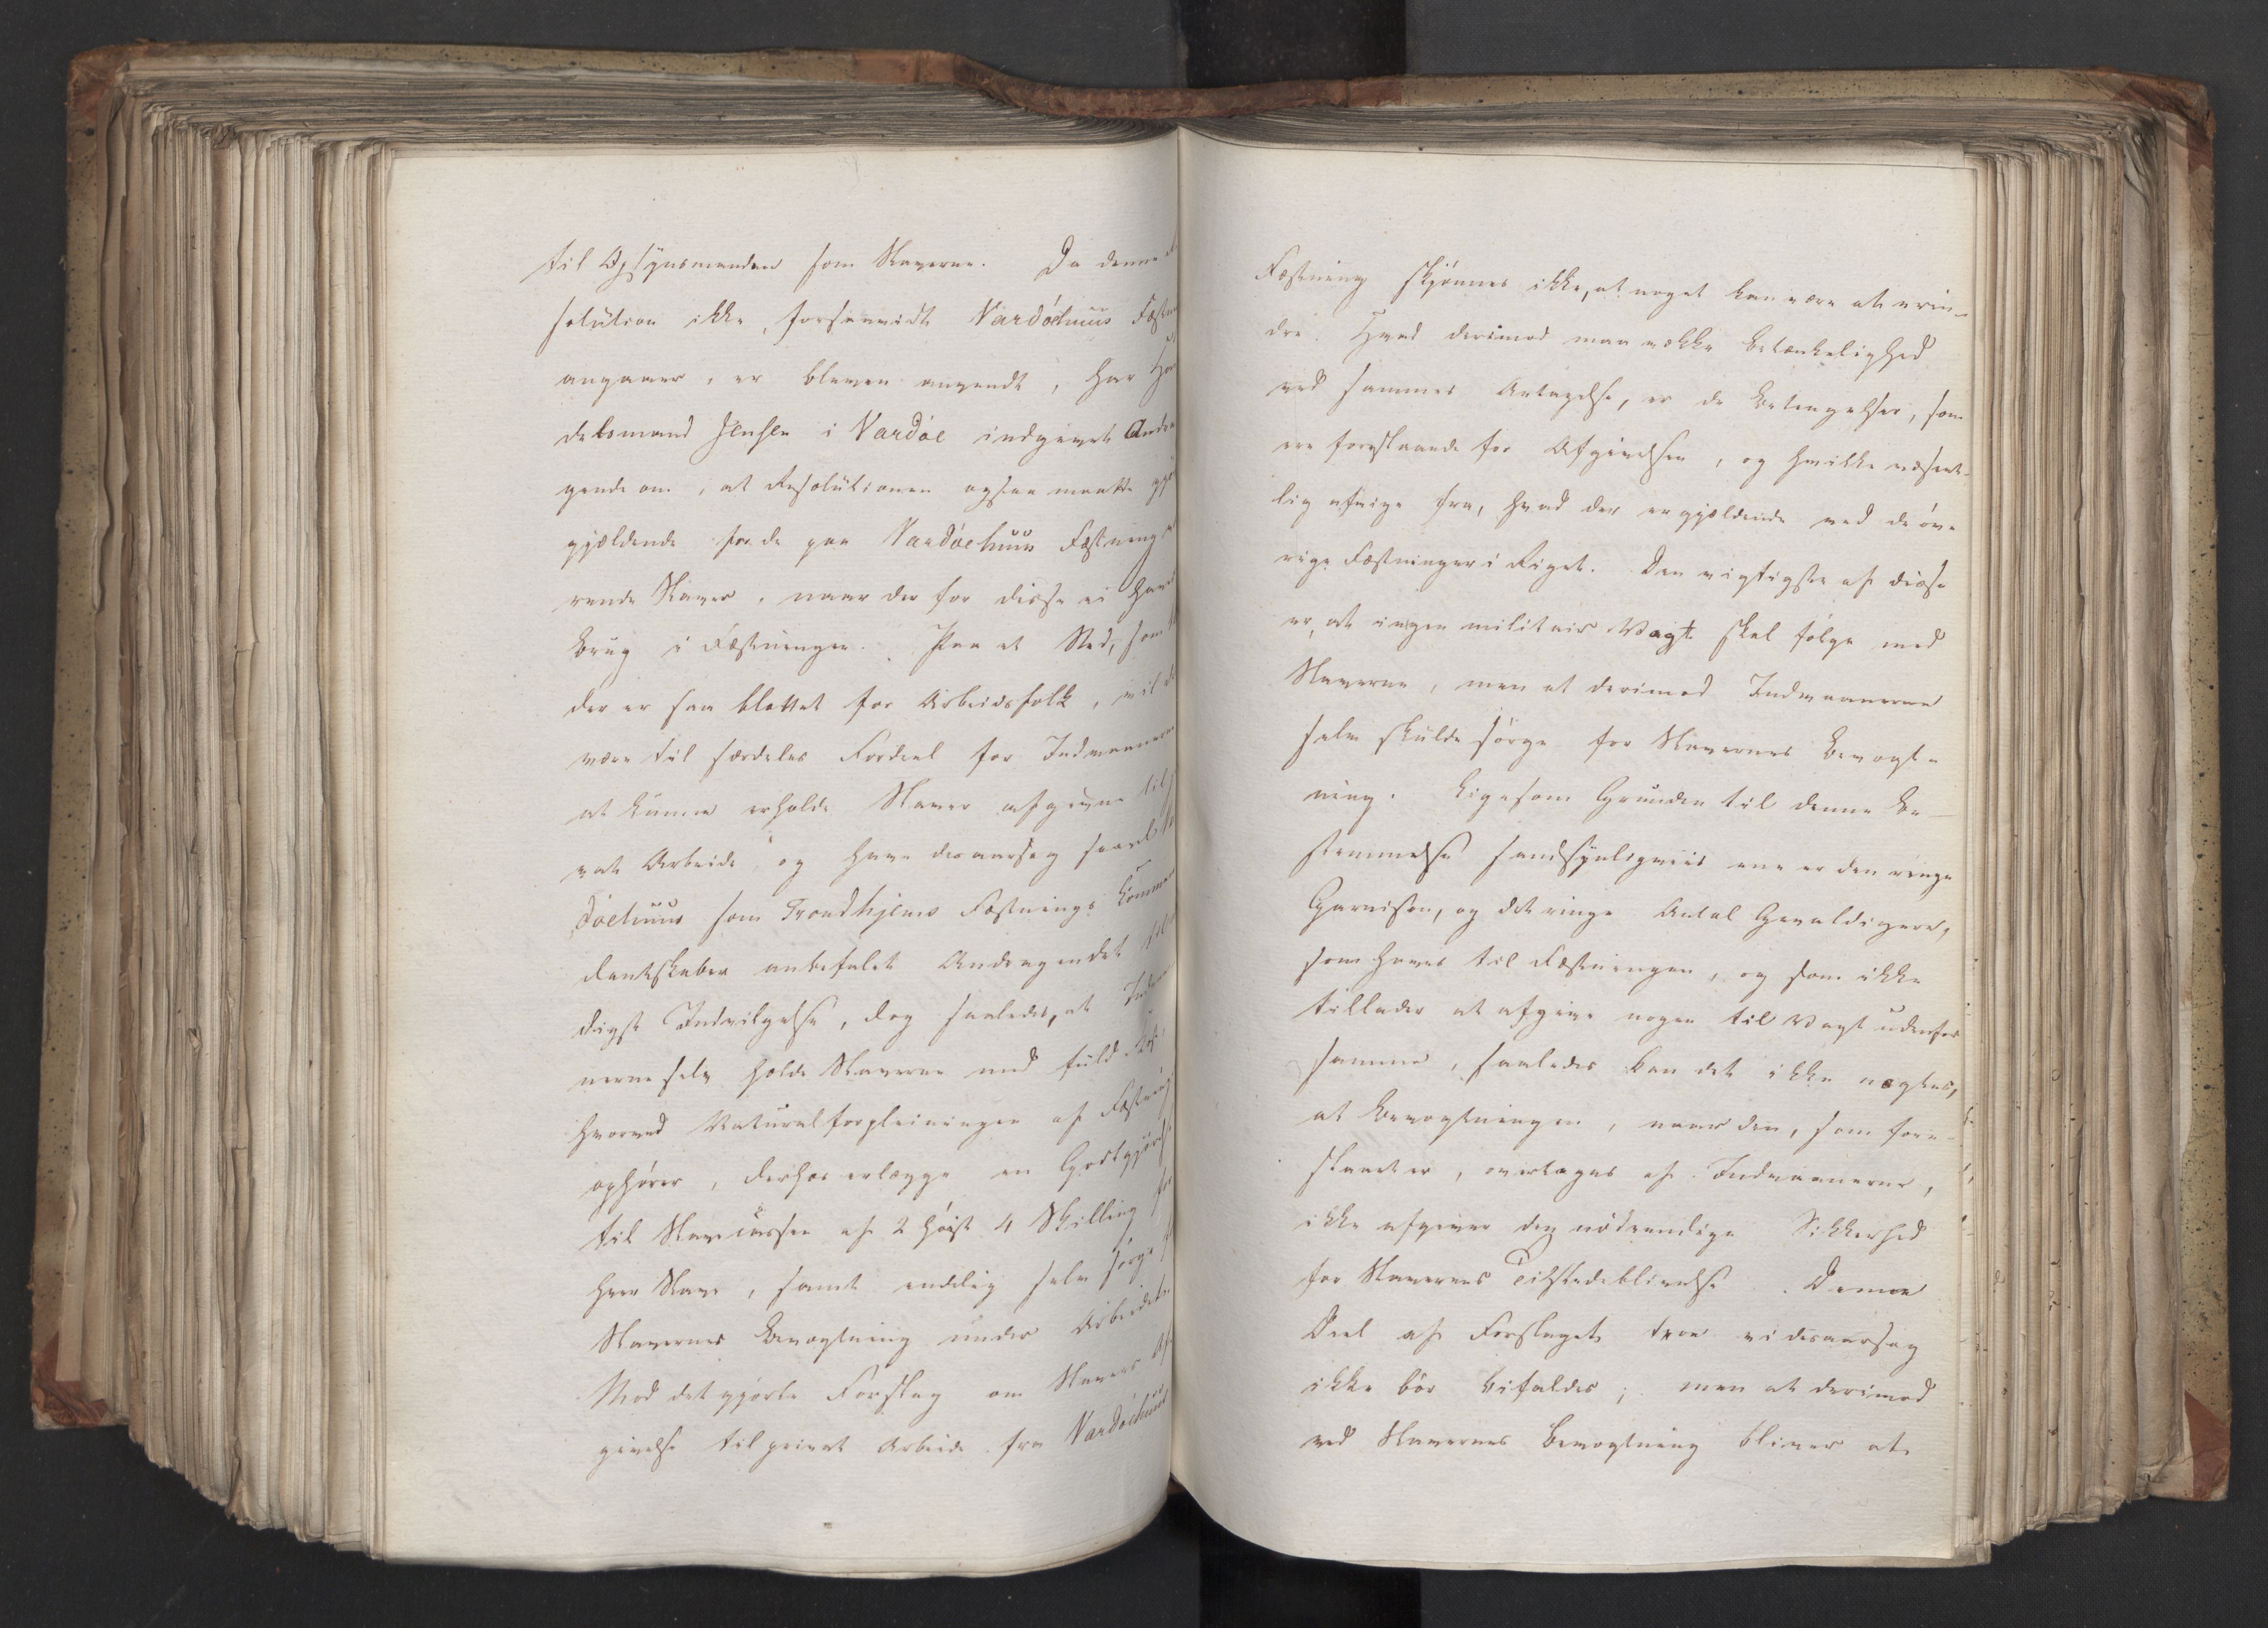 til Opsynsmanden som Slaverne. Da denne
solution ikke, forsaavidt Vardöehuus Fæstn
angaaer, er bleven anvendt, har Han
delsmand Jensen i Vardöe indgivet Andra
gende om, at Resolutionen ogsaa maatte gjö
gjældende for de paa Vardöehuus Fæstning
rende Slaver, naar der for disse ei haves
Brug i Fæstningen. Paa et Sted, som
der er saa blottet for Arbeidsfolk, vil
være til særdeles Fordeel for Indvaanerne
at kunne erholde Slaver afgivne til
vat Arbeide og have desaarsag saavel
döehuus som Trondhjems Fæstnings Komman
dantskaber anbefalet Andragendet til
digst Indvilgelse, dog saaledes, at Indvaa
nerne selv holde Slaverne med fuld Kost,
hvorved Naturalforpleiningen af Fæstning
ophörer, derhos erlægge en Godtgjörelse
til Slavecassen af 2 höist 4 Skilling for
hver Slave, samt endelig selv sörge
Slavernes Bevogtning under Arbeidet.
Mod det gjorte Forslag om Slavers Af
givelse til privat Arbeide fra Vardöehuus
Fæstning skjönnes ikke, at noget kan være at erin-
dre. Hvad derimod maa vække Betænkelighed
ved sammes Antagelse, er de Betingelser, som
ere foreslaaede for Afgivelsen, og hvilke væsent-
lig afvige fra, hvad der er gjældende ved de öv-
rige Fæstninger i Riget. Den vigtigste af disse
er, at ingen militair Vagt skal fölge med
Slaverne, men at derimod Indvaanerne
selv skulde sörge for Slavernes Bevogt-
ning. Ligesom Grunden til denne Be-
stemmelse sandsynligviis ene er den ringe
Garnison, og det ringe Antal Gevaldigere,
som haves til Fæstningen, og som ikke
tillader at afgive nogen til Vagt udenfor
samme, saaledes kan det ikke nægtes,
at Bevogtningen, naar den, som fore-
slaaet er, overtages af Indvaanerne,
ikke afgiver den nödvendige Sikkerhed
for Slavernes Tilstedeblivelse. Denne
Deel af Forslaget troe vi desaarsag
ikke bör bifaldes; men at derimod
ved Slavernes Bevogtning bliver at